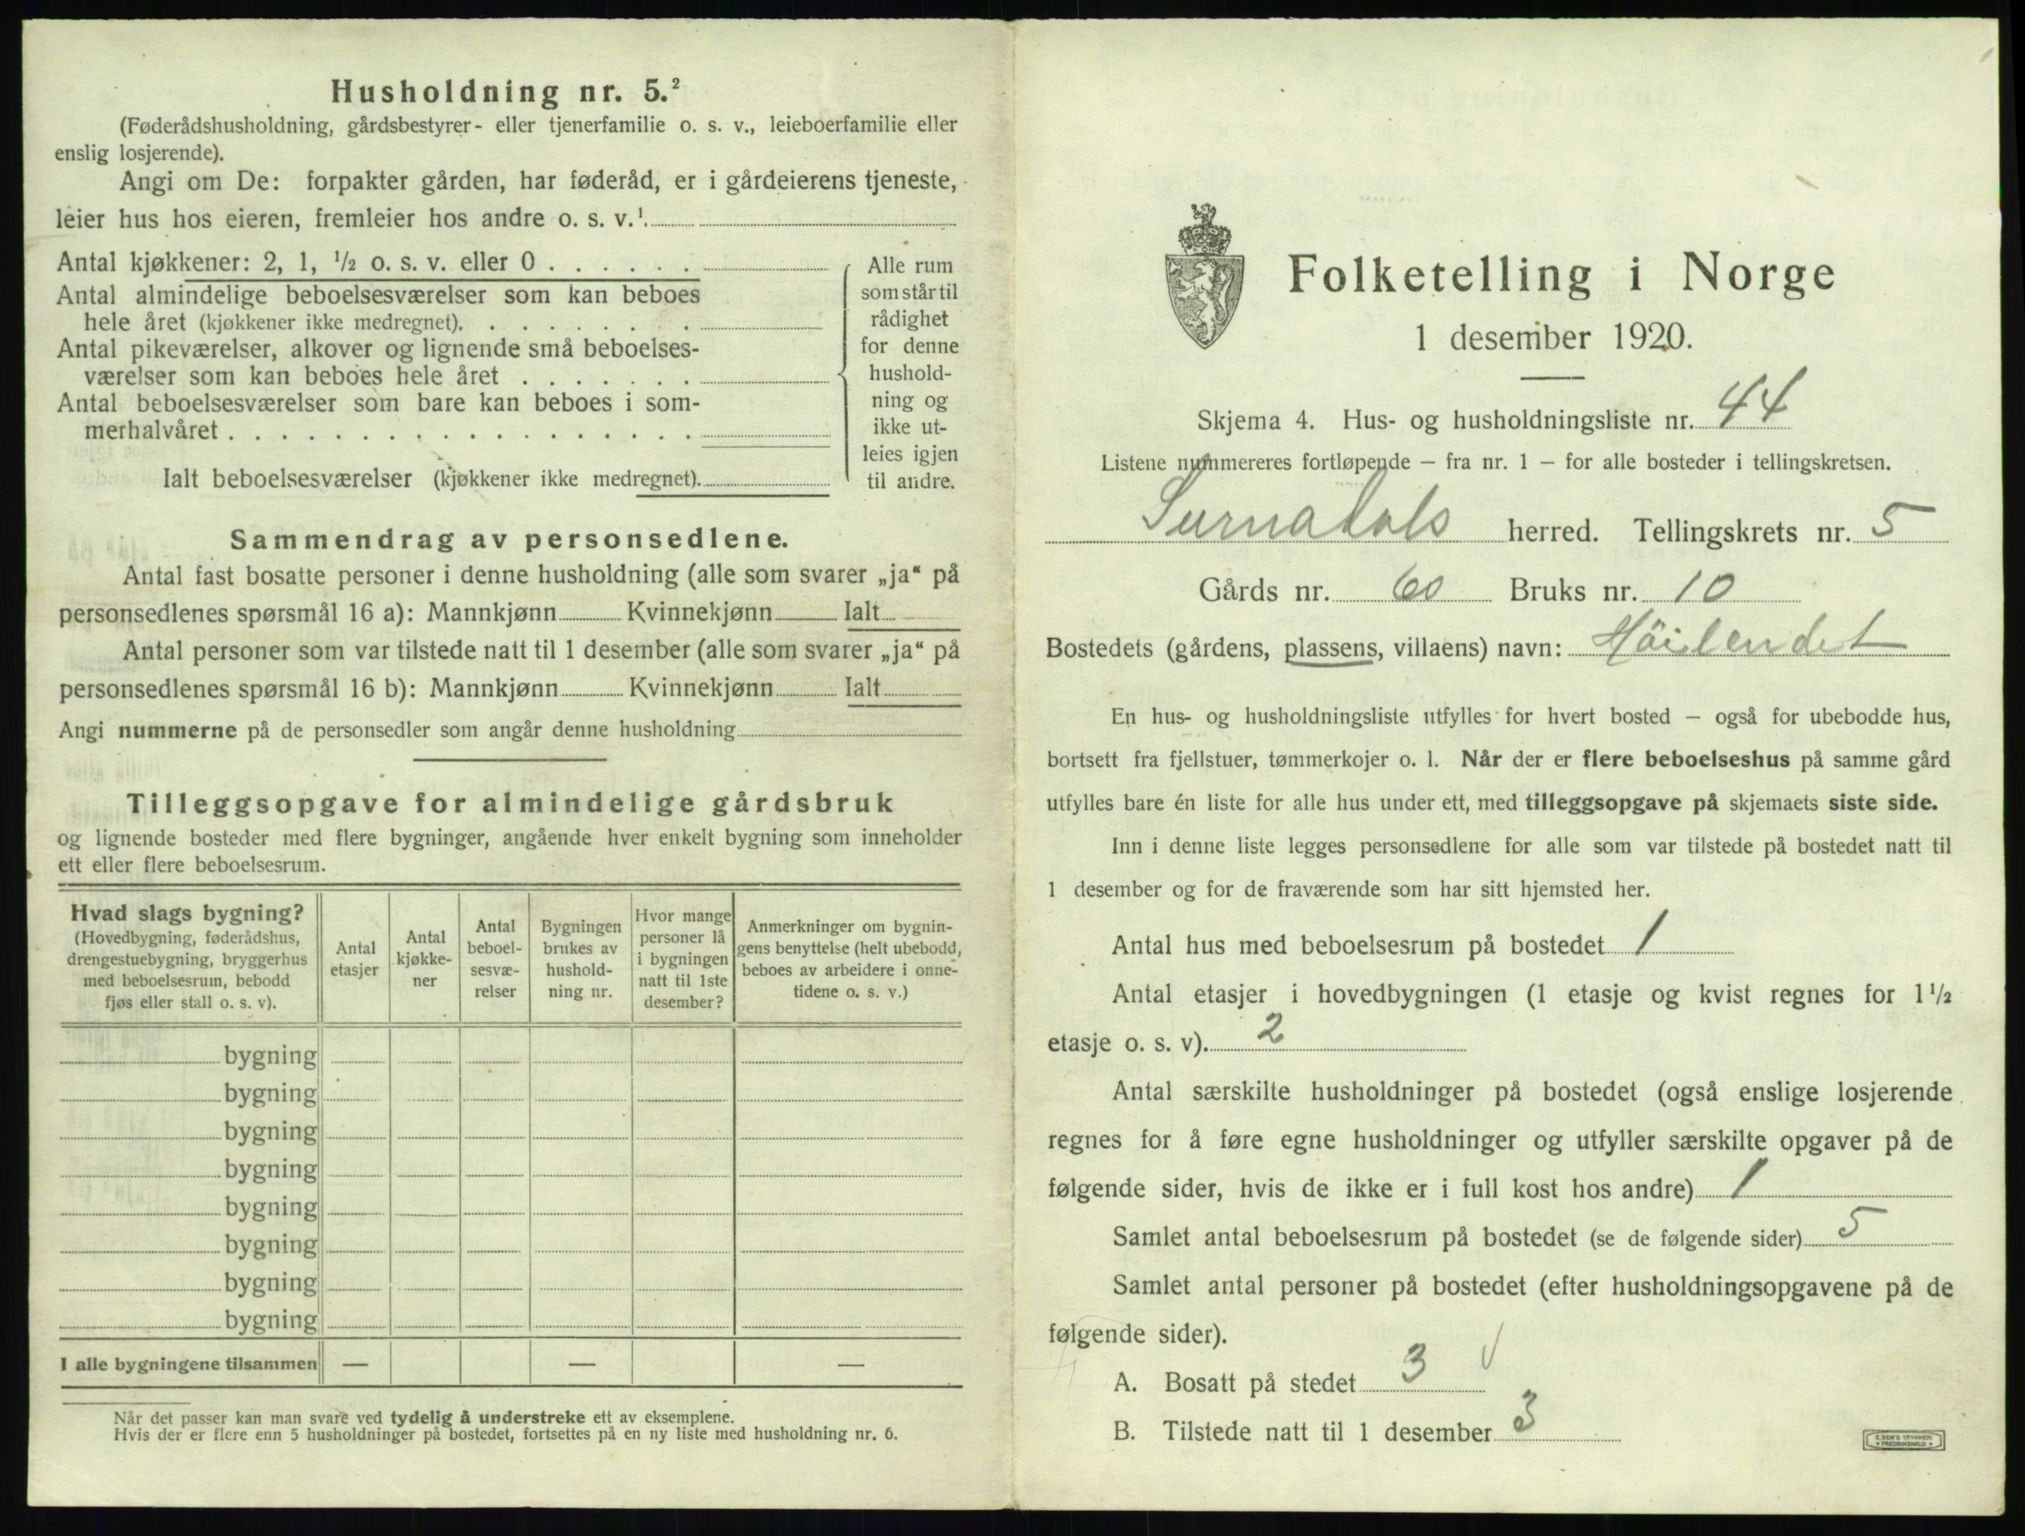 Husholdning nr. 5.²
(Føderådshusholdning, gårdsbestyrer- eller tjenerfamilie o. s. v., leieboerfamilie eller
enslig losjerende).
Angi om De: forpakter gården, har føderåd, er i gårdeierens tjeneste,
leier hus hos eieren, fremleier hos andre o. s. v.¹
Antal kjøkkener: 2, 1, ½ o. s. v. eller 0
Antal almindelige beboelsesværelser som kan beboes
hele året (kjøkkener ikke medregnet).
Antal pikeværelser, alkover og lignende små beboelses-
værelser som kan beboes hele året
Antal beboelsesværelser som bare kan beboes i som-
merhalvåret
Ialt beboelsesværelser (kjøkkener ikke medregnet).
Alle rum
som står til
rådighet
for denne
hushold-
ning og
ikke ut-
leies igjen
til andre.
Sammendrag av personsedlene.
Antal fast bosatte personer i denne husholdning (alle som svarer „ja“ på
personsedlenes spørsmål 16 a): Mannkjønn Kvinnekjønn Ialt
Antal personer som var tilstede natt til 1 desember (alle som svarer „ja“ på
personsedlenes spørsmål 16 b): Mannkjønn Kvinnekjønn Ialt
Angi nummerne på de personsedler som angår denne husholdning
Tilleggsopgave for almindelige gårdsbruk
og lignende bosteder med flere bygninger, angående hver enkelt bygning som inneholder
ett eller flere beboelsesrum.
Hvad slags bygning?
(Hovedbygning, føderådshus,
drengestuebygning, bryggerhus
med beboelsesrum, bebodd
fjøs eller stall o. s. v).
Antal
etasjer
Antal
kjøkke-
ner
Antal
beboel-
sesvæ-
relser
Bygningen
brukes av
hushold-
ning nr.
Hvor mange
personer lå
i bygningen
natt til 1ste
desember?
Anmerkninger om bygnin-
gens benyttelse (helt ubebodd,
beboes av arbeidere i onne-
tidene o. s. v.)
bygning
bygning
bygning
bygning
bygning
bygning
bygning
bygning
I alle bygningene tilsammen — — —
Når det passer kan man svare ved tydelig å understreke ett av eksemplene.
Hvis der er flere enn 5 husholdninger på bostedet, fortsettes på en ny liste med husholdning nr. 6.
Folketelling i Norge
1 desember 1920.
Skjema 4. Hus- og husholdningsliste nr. 44
Listene nummereres fortløpende – fra nr. 1 – for alle bosteder i tellingskretsen.
Surnadals herred. Tellingskrets nr. 5
Gårds nr. 60 Bruks nr. 10
Bostedets (gårdens, plassens, villaens) navn: Höilendet
En hus- og husholdningsliste utfylles for hvert bosted – også for ubebodde hus,
bortsett fra fjellstuer, tømmerkojer o. l. Når der er flere beboelseshus på samme gård
utfylles bare én liste for alle hus under ett, med tilleggsopgave på skjemaets siste side.
Inn i denne liste legges personsedlene for alle som var tilstede på bostedet natt til
1 desember og for de fraværende som har sitt hjemsted her.
Antal hus med beboelsesrum på bostedet 1
Antal etasjer i hovedbygningen (1 etasje og kvist regnes for 1½
etasje o. s. v). 2
Antal særskilte husholdninger på bostedet (også enslige losjerende
regnes for å føre egne husholdninger og utfyller særskilte opgaver på de
følgende sider, hvis de ikke er i full kost hos andre) 1
Samlet antal beboelsesrum på bostedet (se de følgende sider) 5
Samlet antal personer på bostedet (efter husholdningsopgavene på de
følgende sider).
A. Bosatt på stedet 3
B. Tilstede natt til 1 desember 3